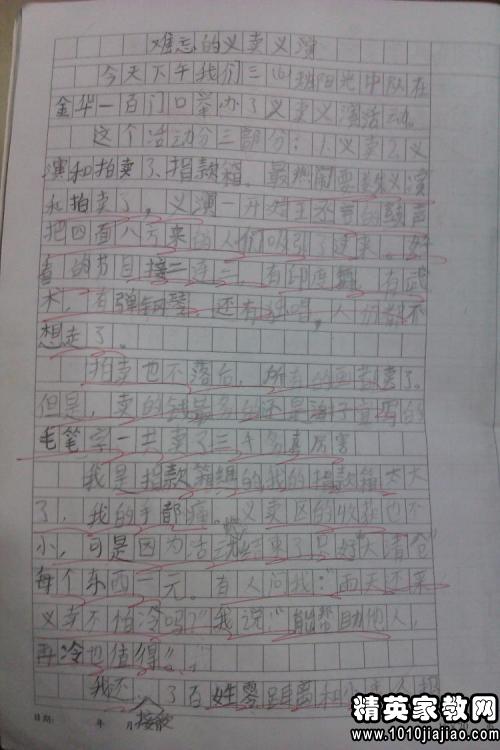 难忘的义卖义演
今天下午我们三(4)班阳光中队在
金华一百门口举办了义卖义演活动。
这个活动分三部分：1、义卖2、义
演和拍卖3、捐款箱。最热闹要数义演
和拍卖了，义演一开始王不声的鼓声
把四面八方来的人们吸引了过来。好
看的节目接二连三，有印度舞，有武
术，有弹钢琴，还有独唱，人们都不
想走了。
拍卖也不落后，所有的画都卖了。
但是，卖的钱最多
毛笔字一共卖了三千多真厉害
我是捐款箱组的我的捐款箱太大
了，我的手都痛。义卖区的收获也不
小，可是因为活动结束了只好"大清仓"
每个东西一元。有人问我："雨天还来
义卖不怕冷吗？"我说："能帮助他人，
再冷也值得"。
我还接歌了百姓零距离和
日期： 年 月
精英家教网
www.1010jiajiao.com